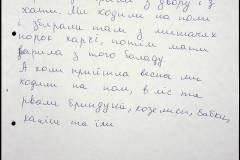 з двору і з
хати. Ми ходили на поля
і збирали там у мишачих
норок харчі, потім мати
варила з того баланду.
А коли прийшла весна ми
ходили на поля, в ліс та
рвали бриндуші, козелики, бабки,
калі та їли